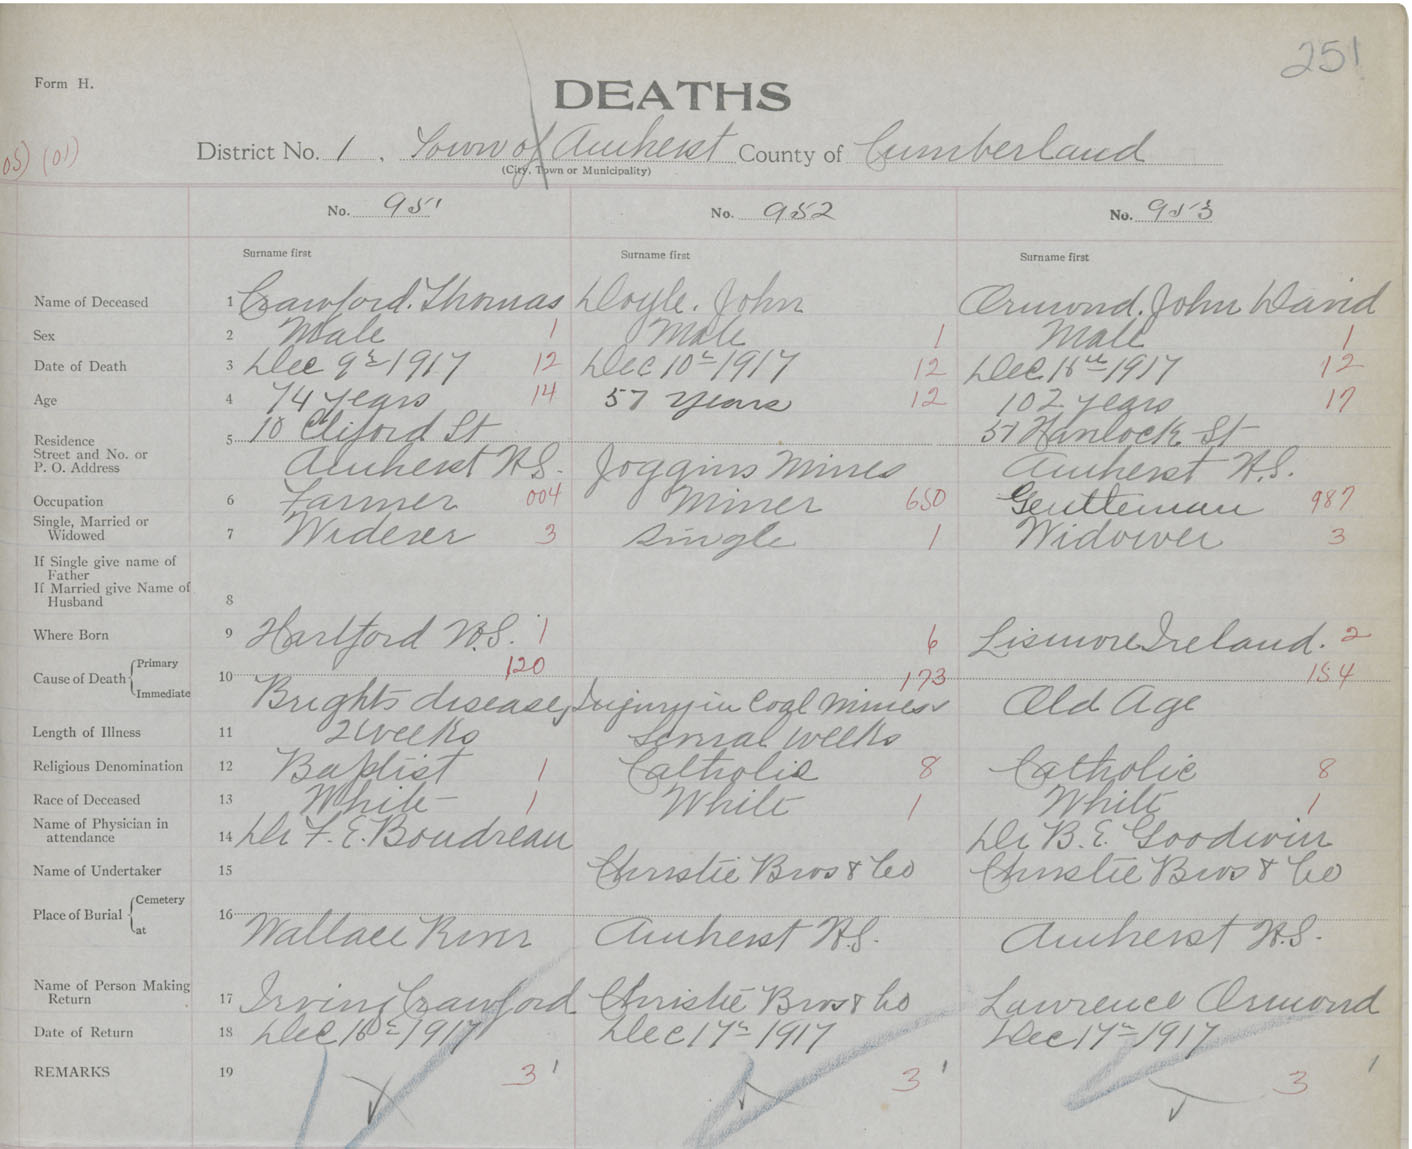 251
Form H.
DEATHS
05) (01)
District No. 1, Town of Amherst County of Cumberland
(City, Town or Municipality)
No. 951 No. 952 No. 953
Surname first Surname first Surname first
Name of Deceased 1 Crawford. Thomas Doyle. John Ormond. John David
Sex 2 Male 1 Male 1 Male 1
Date of Death 3 Dec 9th 1917 12 Dec 10th 1917 12 Dec 16th 1917 12
Age 4 74 years 14 57 years 12 102 years 17
Residence
Street and No. or
P. O. Address
5 10 Cliford St 57 Hanlock St
Amherst N.S. Joggins Mines Amherst N.S.
Occupation 6 Farmer 004 Miner 650 Gentleman 987
Single, Married or
Widowed
7 Widerer 3 Single 1 Widower 3
If Single give name of
Father
If Married give Name of
Husband
8
Where Born 9 Hartford N.S. 1 6 Lismore Ireland. 2
Cause of Death Primary 10 120 173 154
Immediate Brights disease Injury in Coal Mines Old Age
Length of Illness 11 2 weeks Several weeks
Religious Denomination 12 Baptist 1 Catholic 8 Catholic 8
Race of Deceased 13 White 1 White 1 White 1
Name of Physician in
attendance
14 Dr F. E. Boudreau Dr B. E. Goodwin
Name of Undertaker 15 Christie Bros & Co Christie Bros & Co
Place of Burial Cemetery 16
at Wallace River Amherst N.S. Amherst N.S.
Name of Person Making
Return
17 Irving Crawford Christie Bros & Co Lawrence Ormond
Date of Return 18 Dec 16th 1917 Dec 17th 1917 Dec 17th 1917
REMARKS 19 3 1 3 1 3 1